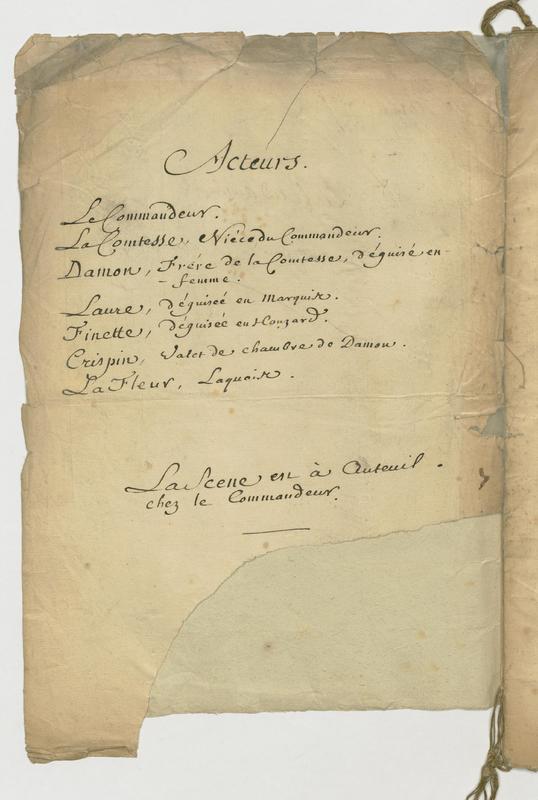 Acteurs.
Le Commandeur.
La Comtesse, Niéce du Commandeur.
Damon, Frére de la Comtesse, déguisé en
- femme.
Laure, déguiseé en Marquis.
Finette, déguiseé en Houzard.
Crispin, Valet de chambre de Damon.
La Fleur, Laquais.
La Scene est à Auteuil.
chez le Commandeur.